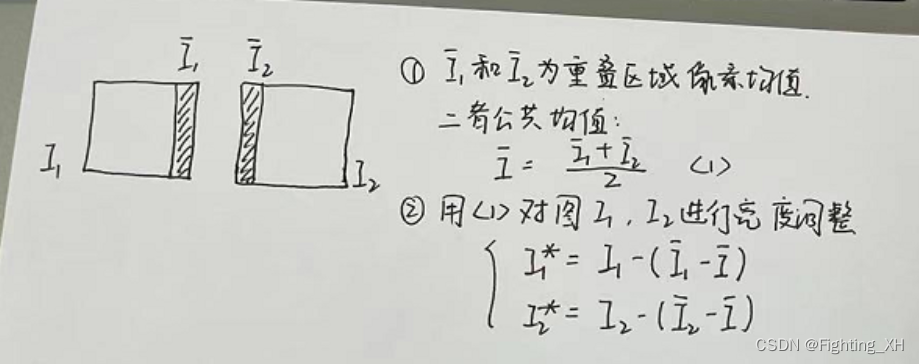 Ī₁ Ī₂
I₁ I₂
① Ī₁和Ī₂为重叠区域像素均值.
二者公共均值:
Ī = (Ī₁+Ī₂)/2 <1>
② 用<1>对图I₁,I₂进行亮度调整
{ I₁* = I₁-(Ī₁-Ī)
I₂* = I₂-(Ī₂-Ī)
CSDN @Fighting_XH